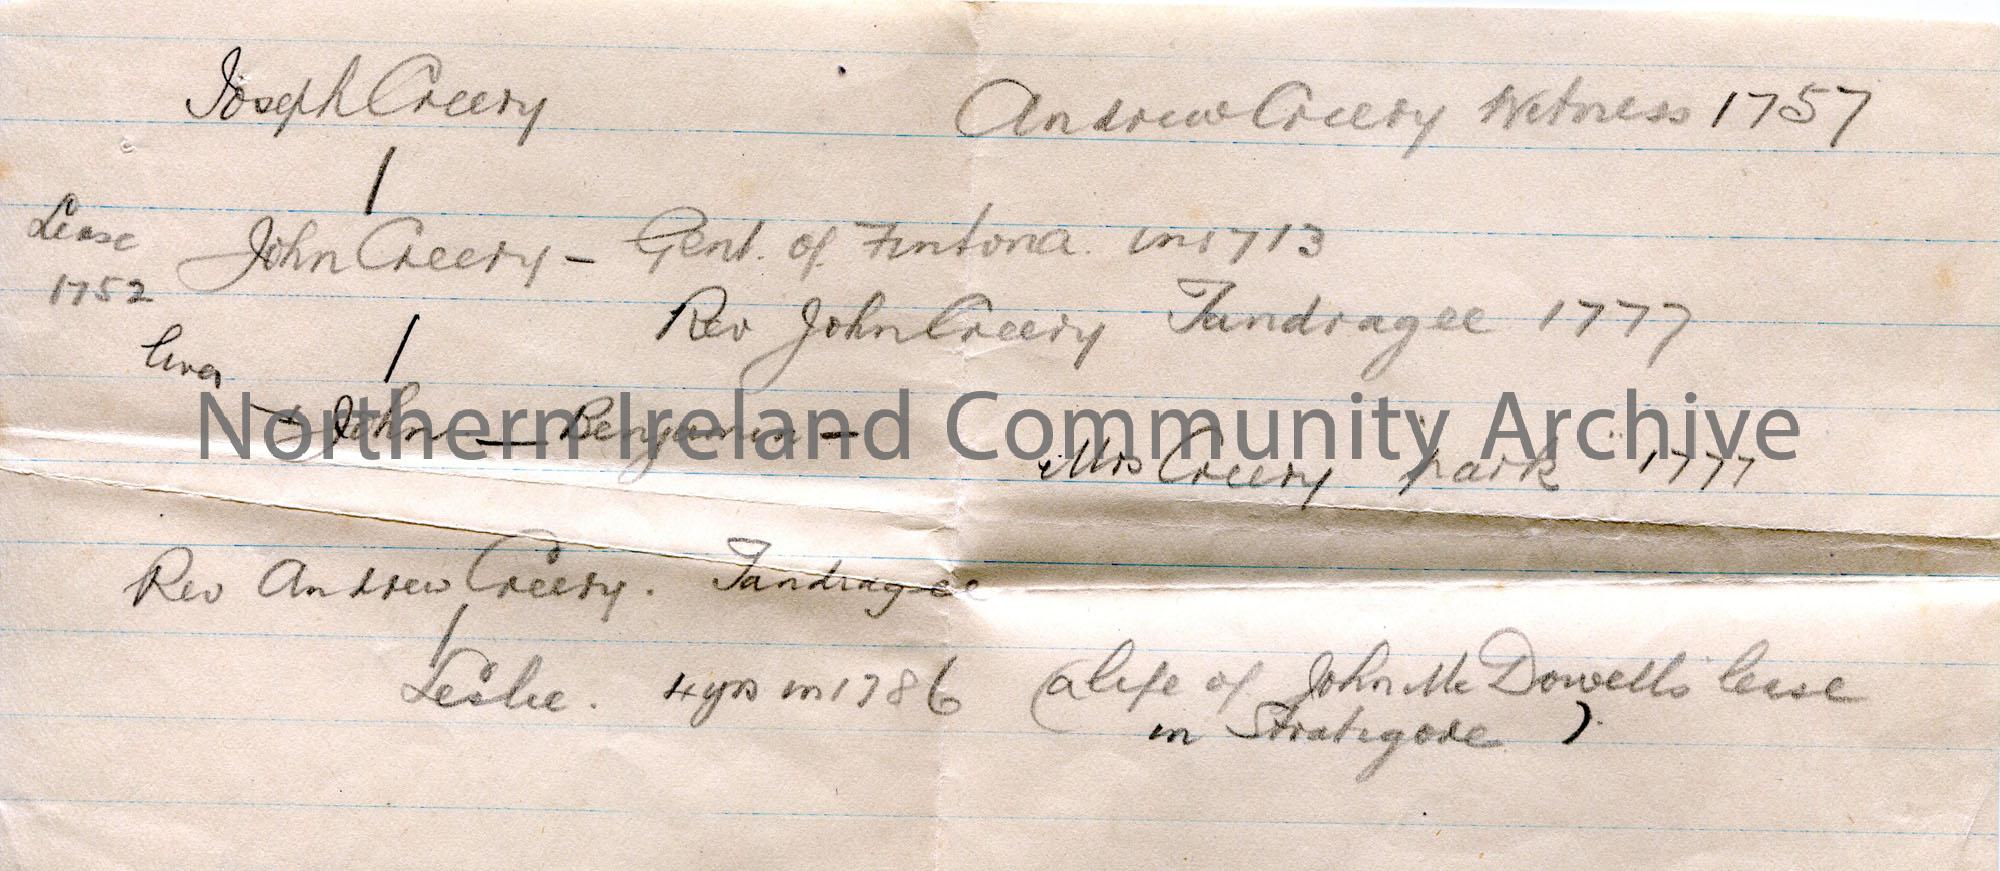 Joseph Creery
Andrew Creery Witness 1757
Lease
1752
John Creery – Gent. of Fintona in 1713
Rev John Creery Tandragee 1777
lives
John — Benjamin –
Northern Ireland Community Archive
Mrs Creery park 1777
Rev Andrew Creery. Tandragee
Leslie. 4 yrs in 1786
(a life of John Mc Dowells lease
in Stratigore )